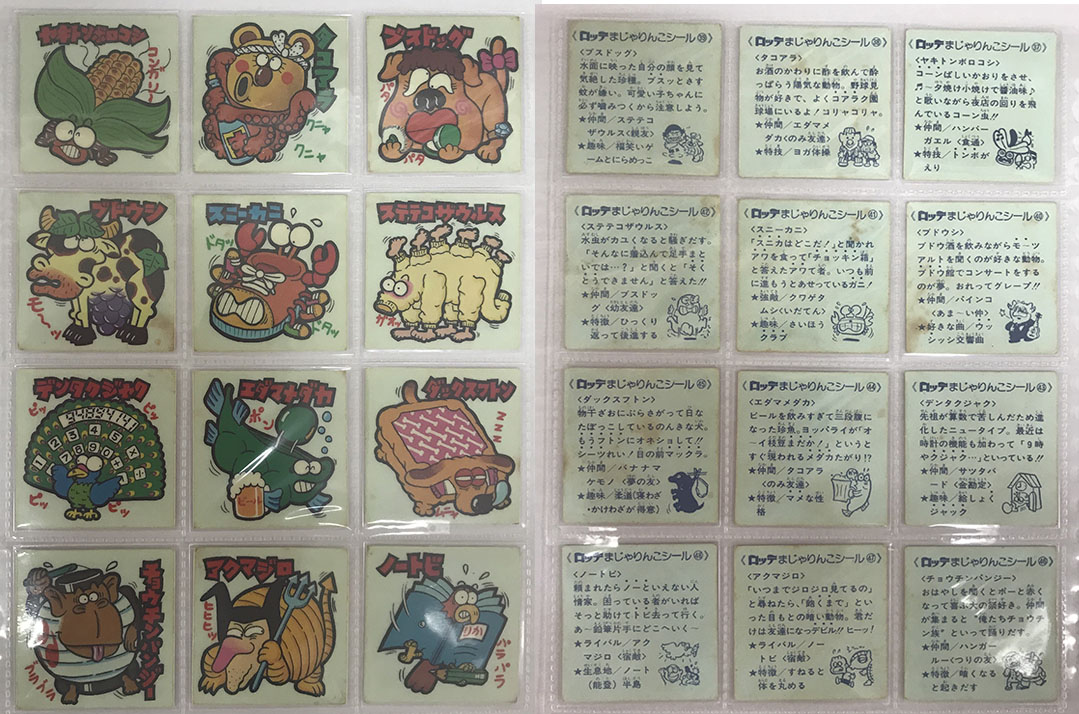 ヤキトンボロコシ
コンガリー
タコアラ
クニャ
クニャ
ブスドッグ
パタ
パタ
ブドウシ
モ〜ッ
スニーカニ
ドタッ
ドタッ
ステテコザウルス
ガオッ
デンタクジャク
ピッ
ピッ
ピッ
ピッ
エダマメダカ
ポン
ビール
ダックスフトン
ZZZ
チョウチンパンジー
アクマジロ
ヒヒヒッ
ノートビ
りか
パラパラ
ロッテまじゃりんこシール㊴
<ブスドッグ>
水面に映った自分の顔を見て
気絶した珍種。ブスッとさす
蚊が嫌い。可愛い子ちゃんに
必ず噛みつくから注意しよう。
★仲間/ステテコ
ザウルス<親友>
★趣味/福笑いゲ
ームとにらめっこ
ロッテまじゃりんこシール㊳
<タコアラ>
お酒のかわりに酢を飲んで酔
っぱらう陽気な動物。野球見
物が好きで、よくコアラク園
球場にいるよ!コリャコリャ。
★仲間/エダマメ
ダカ<のみ友達>
★特技/ヨガ体操
ロッテまじゃりんこシール㊲
<ヤキトンボロコシ>
コーンばしいかおりをさせ、
♬〜夕焼け小焼けで醤油味♪
と歌いながら夜店の回りを飛
んでいるコーン虫!!
★仲間/ハンバー
ガエル<食通>
★特技/トンボが
えり
ロッテまじゃりんこシール㊷
<ステテコザウルス>
水虫がカユくなると騒ぎだす。
「そんなに着込んで足手まと
いでは…?」と聞くと「そく
とうできません」と答えた!!
★仲間/ブスドッ
グ<幼友達>
★特徴/ひっくり
返って後進する
ロッテまじゃりんこシール㊶
<スニーカニ>
「スニカはどこだ!」と聞かれ
アワを食って「チョッキン箱」
と答えたアワて者。いつも前
に進もうとあせっているガニ!
★強敵/クワゲタ
ムシ<いだてん>
★趣味/さいほう
クラブ
ロッテまじゃりんこシール㊵
<ブドウシ>
ブドウ酒を飲みながらモーツ
アルトを聞くのが好きな動物。
ブドウ館でコンサートをする
のが夢。おれってグレープ!!
★仲間/パインコ
<あま〜い仲>
★好きな曲/ウッ
シッシ交響曲
ロッテまじゃりんこシール㊺
<ダックスフトン>
物干ざおにぶらさがって日な
たぼっこしているのんきな犬。
もうフトンにオネショして!!
シーツれい!目の前マックラ。
★仲間/バナナマ
ケモノ<夢の友>
★趣味/柔道(寝わざ
・かけわざが得意)
ロッテまじゃりんこシール㊹
<エダマメダカ>
ビールを飲みすぎて三段腹に
なった珍魚。ヨッパライが「オ
〜イ枝豆まだか!」というと
すぐ現われるメダカたがり!?
★仲間/タコアラ
<のみ友達>
★特徴/マメな性
格
ロッテまじゃりんこシール㊸
<デンタクジャク>
先祖が算数で苦しんだため進
化したニュータイプ。最近は
時計の機能も加わって「9時
やクジャク…」といっている!!
★仲間/サツタバ
ード<金勘定>
★趣味/絵しょく
ジャック
ロッテまじゃりんこシール㊽
<ノートビ>
頼まれたらノーといえない人
情家。困っている者がいれば
そっと助けてトビ去って行く。
あ〜鉛筆片手にどこへいく〜
★ライバル/アク
マジロ<宿敵>
★生息地/ノート
(能登)半島
ロッテまじゃりんこシール㊼
<アクマジロ>
「いつまでジロジロ見てるの」
と尋ねたら、「飽くまで」とい
った目もとの暗い動物。君だ
けは友達になっデビル!!ヒーッ!
★ライバル/ノー
トビ<宿敵>
★特徴/すねると
体を丸める
ロッテまじゃりんこシール㊻
<チョウチンパンジー>
おはやしを聞くとボーと赤く
なって喜ぶ大の頭好き。仲間
が集まると“俺たちチョウチ
ン族”といって踊りだす。
★仲間/ハンガー
ルー<つりの友>
★特徴/暗くなる
と起きだす